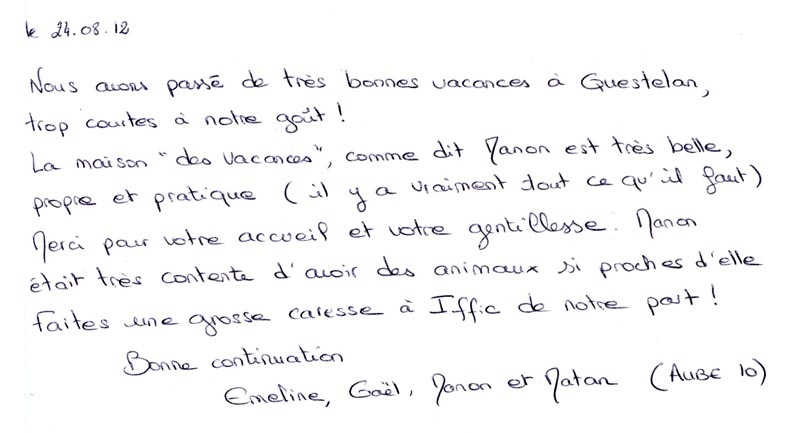 le 24.08.12
Nous avons passé de très bonnes vacances à Guestelan,
trop courtes à notre goût !
La maison "des vacances", comme dit Manon est très belle,
propre et pratique (il y a vraiment tout ce qu'il faut)
Merci pour votre accueil et votre gentillesse. Manon
était très contente d'avoir des animaux si proches d'elle
faites une grosse caresse à Iffic de notre part !
Bonne continuation
Emeline, Gaël, Manon et Matan (AUBE 10)